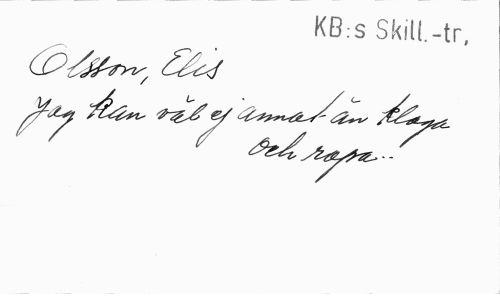 KB:s Skill.-tr,
Olsson, Elis
Jag kan väl ej annat än klaga
och ropa..